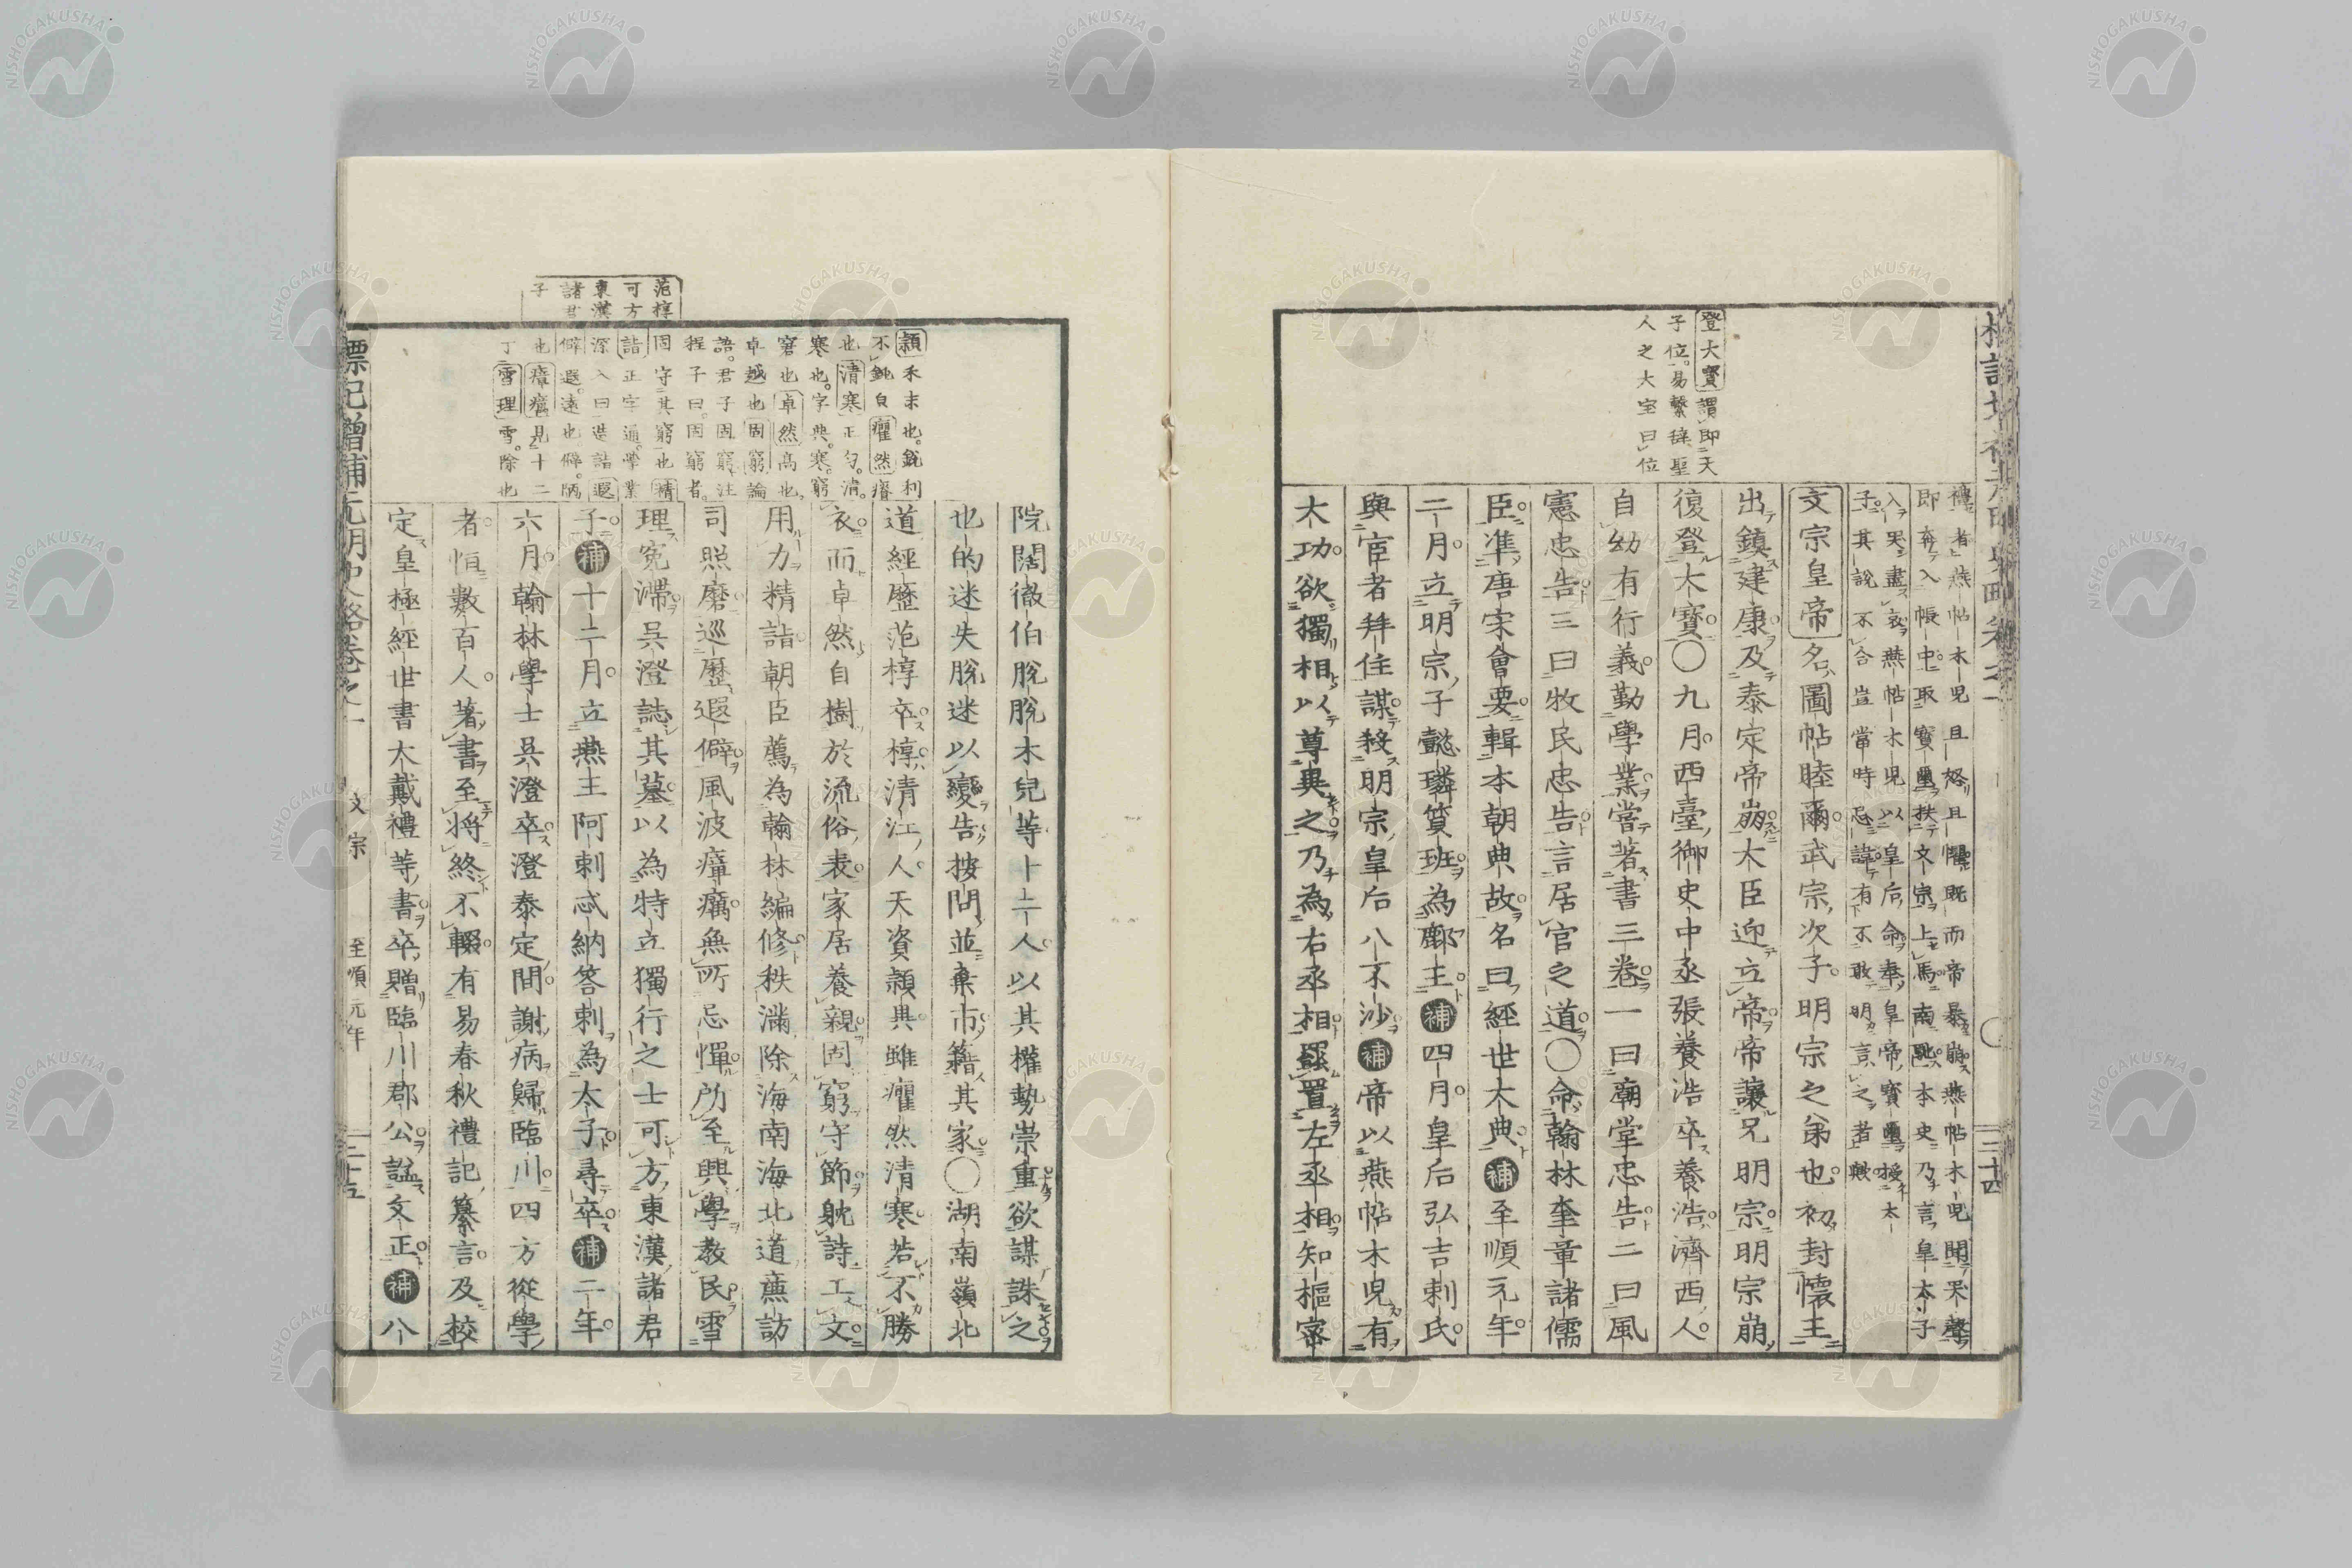 登大寶謂即天
子位易繫辭聖
人之大宝曰位
禮者燕帖木兒且怒且懼既而帝暴崩燕帖木兒聞哭聲
即奔入帳中取寶璽扶文宗上馬南馳本史乃言皇太子
入哭盡哀燕帖木兒以皇后命奉皇帝寶璽授太
子其說不合豈當時忌諱有不敢明言之者歟
文宗皇帝名圖帖睦爾武宗次子明宗之弟也初封懷王
出鎮建康及泰定帝崩大臣迎立帝帝讓兄明宗明宗崩
復登大寶〇九月西臺御史中丞張養浩卒養浩濟西人
自幼有行義勤學業嘗著書三卷一曰廟堂忠告二曰風
憲忠告三曰牧民忠告言居官之道〇命翰林奎章諸儒
臣準唐宋會要輯本朝典故名曰經世大典補至順元年
二月立明宗子懿璘質班為鄜王補四月皇后弘吉剌氏
與宦者拜住謀殺明宗皇后八不沙補帝以燕帖木児有
大功欲獨相以尊異之乃為右丞相罷置左丞相知樞密
三十四
范梈
可方
東漢
諸君
子
穎禾末也銳利
不鈍自癯然瘠
也清寒正勻清
寒也字典寒窮
窘也卓然高也
卓越也固窮論
語君子固窮注
程子曰固窮者
固守其窮也精
詣正字通學業
深入曰造詣遐
僻遐遠也僻陋
也瘴癘見十二
丁雪理雪除也
院闊徹伯脫脫木兒等十二人以其權勢崇重欲謀誅之
也的迷失脫迷以變告按問並棄市籍其家〇湖南嶺北
道經歷范梈卒梈清江人天資穎異雖癯然清寒若不勝
衣而卓然自樹於流俗表家居養親固窮守節耽詩工文
用力精詣朝臣薦為翰林編修秩滿除海南海北道廉訪
司照磨巡歷遐僻風波瘴癘無所忌憚所至興學教民雪
理冤滯吳澄誌其墓以為特立獨行之士可方東漢諸君
子補十二月立燕王阿剌忒納答剌為太子尋卒補二年
六月翰林學士吳澄卒澄泰定間謝病歸臨川四方從學
者恒數百人著書至將終不輟有易春秋禮記纂言及校
定皇極經世書大戴禮等書卒贈臨川郡公諡文正補八
標記增補元明史略卷之一 文宗 至順元年 三十五